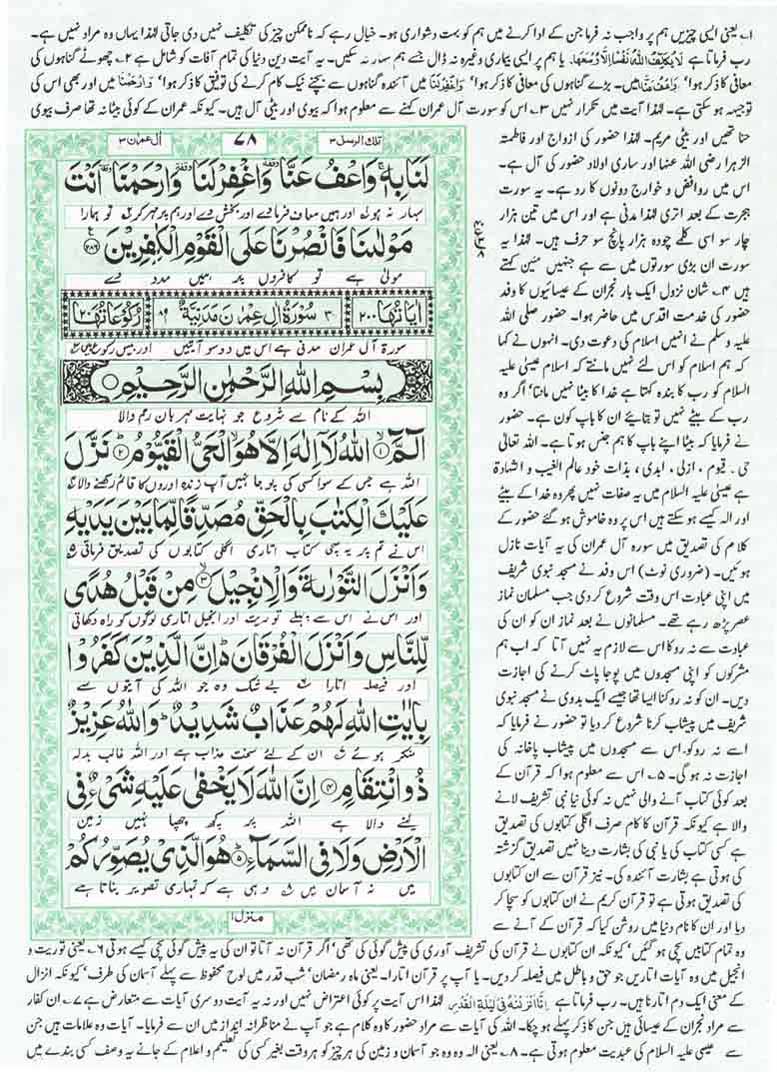 ۱۔ یعنی ایسی چیزیں ہم پر واجب نہ فرما جن کے ادا کرنے میں ہم کو بہت دشواری ہو۔ خیال رہے کہ ناممکن چیز کی تکلیف نہیں دی جاتی لہٰذا یہاں وہ مراد نہیں ہے۔
رب فرماتا ہے لَا یُکَلِّفُ اللّٰہُ نَفْسًا اِلَّا وُسْعَہَا۔ یا ہم پر ایسی بیماری وغیرہ نہ ڈال جسے ہم سہار نہ سکیں۔ یہ آیت دین دنیا کی تمام آفات کو شامل ہے ۲۔ چھوٹے گناہوں کی
معافی کا ذکر ہوا' وَاعْفُ عَنَّا میں۔ بڑے گناہوں کی معافی کا ذکر ہوا' وَاغْفِرْلَنَا میں آئندہ گناہوں سے بچنے نیک کام کرنے کی توفیق کا ذکر ہوا' وَارْحَمْنَا میں اور بھی اس کی
توجیہہ ہو سکتی ہے۔ لہٰذا آیت میں تکرار نہیں ۳۔ اس کو سورت آل عمران کہنے سے معلوم ہوا کہ بیوی اور بیٹی آل ہیں۔ کیونکہ عمران کے کوئی بیٹا نہ تھا صرف بیوی
حنا تھیں اور بیٹی مریم۔ لہٰذا حضور کی ازواج اور فاطمتہ
الزہرا رضی اللہ عنہا اور ساری اولاد حضور کی آل ہے۔
اس میں روافض و خوارج دونوں کا رد ہے۔ یہ سورت
ہجرت کے بعد اتری لہٰذا مدنی ہے اور اس میں تین ہزار
چار سو اسی کلمے چودہ ہزار پانچ سو حرف ہیں۔ لہٰذا یہ
سورت ان بڑی سورتوں میں سے ہے جنہیں مئین کہتے
ہیں ۴۔ شان نزول ایک بار نجران کے عیسائیوں کا وفد
حضور کی خدمت اقدس میں حاضر ہوا۔ حضور صلی اللہ
علیہ وسلم نے انہیں اسلام کی دعوت دی۔ انہوں نے کہا
کہ ہم اسلام کو اس لئے نہیں مانتے کہ اسلام عیسیٰ علیہ
السلام کو رب کا بندہ کہتا ہے خدا کا بیٹا نہیں مانتا' اگر وہ
رب کے بیٹے نہیں تو بتائیے ان کا باپ کون ہے۔ حضور
نے فرمایا کہ بیٹا اپنے باپ کا ہم جنس ہوتا ہے۔ اللہ تعالیٰ
حی۔ قیوم ، ازلی ، ابدی ، بذات خود عالم الغیب و الشہادۃ
ہے عیسیٰ علیہ السلام میں یہ صفات نہیں پھر وہ خدا کے بیٹے
اور الہ کیسے ہو سکتے ہیں اس پر وہ خاموش ہو گئے حضور کے
کلام کی تصدیق میں سورہ آل عمران کی یہ آیات نازل
ہوئیں۔ (ضروری نوٹ) اس وفد نے مسجد نبوی شریف
میں اپنی عبادت اس وقت شروع کر دی جب مسلمان نماز
عصر پڑھ رہے تھے۔ مسلمانوں نے بعد نماز ان کو ان کی
عبادت سے نہ روکا اس سے لازم یہ نہیں آتا کہ اب ہم
مشرکوں کو اپنی مسجدوں میں پوجا پاٹ کرنے کی اجازت
دیں۔ ان کو نہ روکنا ایسا تھا جیسے ایک بدوی نے مسجد نبوی
شریف میں پیشاب کرنا شروع کر دیا تو حضور نے فرمایا کہ
اسے نہ روکو۔ اس سے مسجدوں میں پیشاب پاخانہ کی
اجازت نہ ہو گی۔ ۵۔ اس سے معلوم ہوا کہ قرآن کے
بعد کوئی کتاب آنے والی نہیں نہ کوئی نیا نبی تشریف لانے
والا ہے کیونکہ قرآن کا کام صرف اگلی کتابوں کی تصدیق
ہے کسی کتاب کی یا نبی کی بشارت دینا نہیں تصدیق گزشتہ
کی ہوتی ہے بشارت آئندہ کی۔ نیز قرآن سے ان کتابوں
کی تصدیق ہوتی ہے تو قرآن کریم نے ان کتابوں کو سچا کر
دیا اور ان کا نام دنیا میں روشن کیا کہ قرآن کے آنے سے
تلک الرسل ۳
۷۸
اٰل عمران ۳
لَنَا بِهٖ وَاعْفُ عَنَّا وَاغْفِرْ لَنَا وَارْحَمْنَا اَنْتَ
سہار نہ ہو اور ہمیں معاف فرما دے اور بخش دے اور ہم پر مہر کر تو ہمارا
مَوْلٰىنَا فَانْصُرْنَا عَلَى الْقَوْمِ الْكٰفِرِيْنَ ۲۸۶
مولیٰ ہے تو کافروں پر ہمیں مدد دے
اٰيَاتُهَا ۲۰۰
۳ سُوْرَةُ اٰلِ عِمْرٰنَ مَدَنِيَّةٌ ۸۹
رُكُوْعَاتُهَا ۲۰
سورۃ آل عمران مدنی ہے اس میں دو سو آیتیں اور بیس رکوع ہیں
بِسْمِ اللّٰهِ الرَّحْمٰنِ الرَّحِيْمِ
اللہ کے نام سے شروع جو نہایت مہربان رحم والا
الٓمّٓ ۱ اللّٰهُ لَاۤ اِلٰهَ اِلَّا هُوَ الْحَيُّ الْقَيُّوْمُ ۲ نَزَّلَ
اللہ ہے جس کے سوا کسی کی پوجا نہیں آپ زندہ اوروں کا قائم رکھنے والا
عَلَيْكَ الْكِتٰبَ بِالْحَقِّ مُصَدِّقًا لِّمَا بَيْنَ يَدَيْهِ
اس نے تم پر یہ سچی کتاب اتاری اگلی کتابوں کی تصدیق فرماتی
وَاَنْزَلَ التَّوْرٰىةَ وَالْاِنْجِيْلَ ۳ مِنْ قَبْلُ هُدًى
اور اس نے اس سے پہلے توریت اور انجیل اتاری لوگوں کو راہ دکھاتی
لِّلنَّاسِ وَاَنْزَلَ الْفُرْقَانَ اِنَّ الَّذِيْنَ كَفَرُوْا
اور فیصلہ اتارا بے شک وہ جو اللہ کی آیتوں سے
بِاٰيٰتِ اللّٰهِ لَهُمْ عَذَابٌ شَدِيْدٌ وَاللّٰهُ عَزِيْزٌ
منکر ہوئے ان کے لئے سخت عذاب ہے اور اللہ غالب بدلہ
ذُو انْتِقَامٍ ۴ اِنَّ اللّٰهَ لَا يَخْفٰى عَلَيْهِ شَيْءٌ فِى
لینے والا ہے اللہ پر کچھ چھپا نہیں زمین
الْاَرْضِ وَلَا فِى السَّمَآءِ ۵ هُوَ الَّذِيْ يُصَوِّرُكُمْ
میں نہ آسمان میں وہی ہے کہ تمہاری تصویر بناتا ہے
منزل ۱
وہ تمام کتابیں سچی ہو گئیں' کیونکہ ان کتابوں نے قرآن کی تشریف آوری کی پیش گوئی کی تھی' اگر قرآن نہ آتا تو ان کی یہ پیش گوئی سچی کیسے ہوتی ۶۔ یعنی توریت و
انجیل میں وہ آیات اتاریں جو حق و باطل میں فیصلہ کر دیں۔ یا آپ پر قرآن اتارا۔ یعنی ماہ رمضان' شب قدر میں لوح محفوظ سے پہلے آسمان کی طرف' کیونکہ انزال
کے معنی ایک دم اتارنا ہیں۔ رب فرماتا ہے اِنَّا اَنْزَلْنٰہُ فِیْ لَیْلَۃِ الْقَدْرِ لہٰذا اس آیت پر کوئی اعتراض نہیں اور نہ یہ آیت دوسری آیات سے متعارض ہے ۷۔ ان کفار
سے مراد نجران کے عیسائی ہیں جن کا ذکر پہلے ہو چکا۔ اللہ کی آیات سے مراد حضور کا وہ کلام ہے جو آپ نے مناظرانہ انداز میں ان سے فرمایا۔ آیات وہ علامات ہیں جن
سے عیسیٰ علیہ السلام کی عبدیت معلوم ہوتی ہے۔ ۸۔ یعنی الہ وہ وہ جو آسمان و زمین کی ہر چیز کو ہر وقت بغیر کسی کی تعلیم و اعلام کے جانے یہ وصف کسی بندے میں